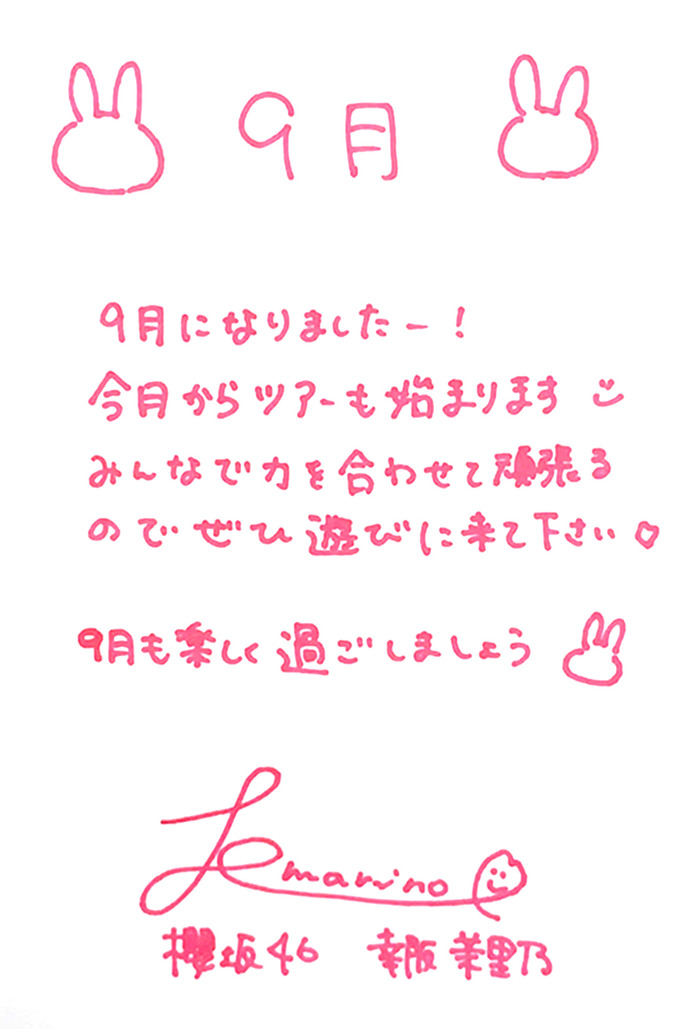 9月
9月になりましたー！
今月からツアーも始まります
みんなで力を合わせて頑張る
のでぜひ遊びに来て下さい♡
9月も楽しく過ごしましょう
marino
櫻坂46 幸阪茉里乃